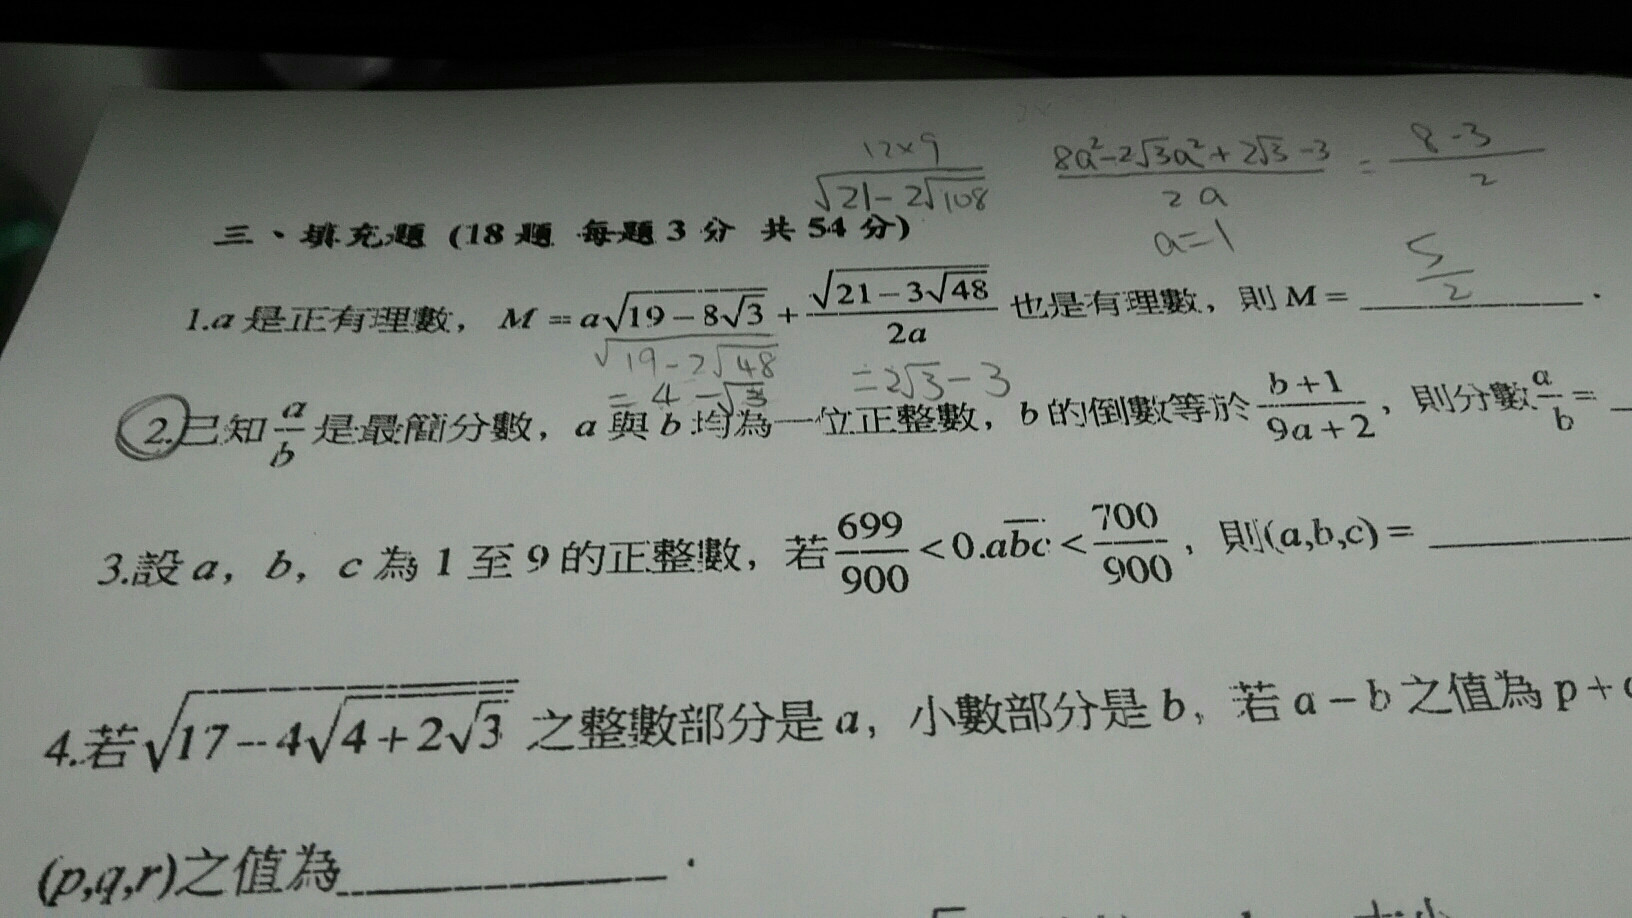 12×9
√21-2√108
8a²-2√3a²+2√3-3 / 2a = 8-3 / 2
a=1
三、填充題 (18題 每題3分 共54分)
5/2
1.a是正有理數, M = a√19-8√3 + √21-3√48 / 2a 也是有理數, 則M= ______ .
√19-2√48
= 4-√3 = 2√3-3
2.已知 a/b 是最簡分數, a與b均為一位正整數, b的倒數等於 b+1 / 9a+2, 則分數 a/b = _
3.設a, b, c為1至9的正整數, 若 699/900 < 0.abc < 700/900, 則(a,b,c)= ______
4.若 √17-4√4+2√3 之整數部分是a, 小數部分是b, 若a-b之值為p+
(p,q,r)之值為______ .